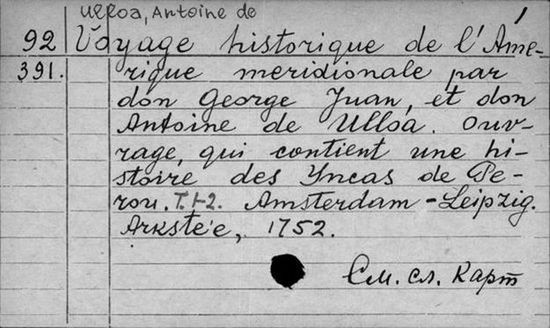 Ulloa, Antoine de
92 Voyage historique de l'Amé-
391. rique meridionale par
don George Juan, et don
Antoine de Ulloa. Ouv-
rage, qui contient une hi-
stoire des Yncas de Pe-
rou. T.1-2. Amsterdam-Leipzig.
Arkste'e, 1752.
См. сл. карт